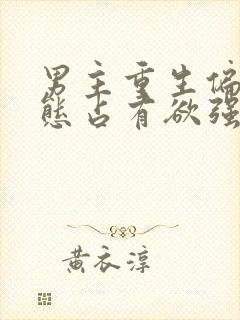 男主重生偏
态占有欲强
黄衣淳